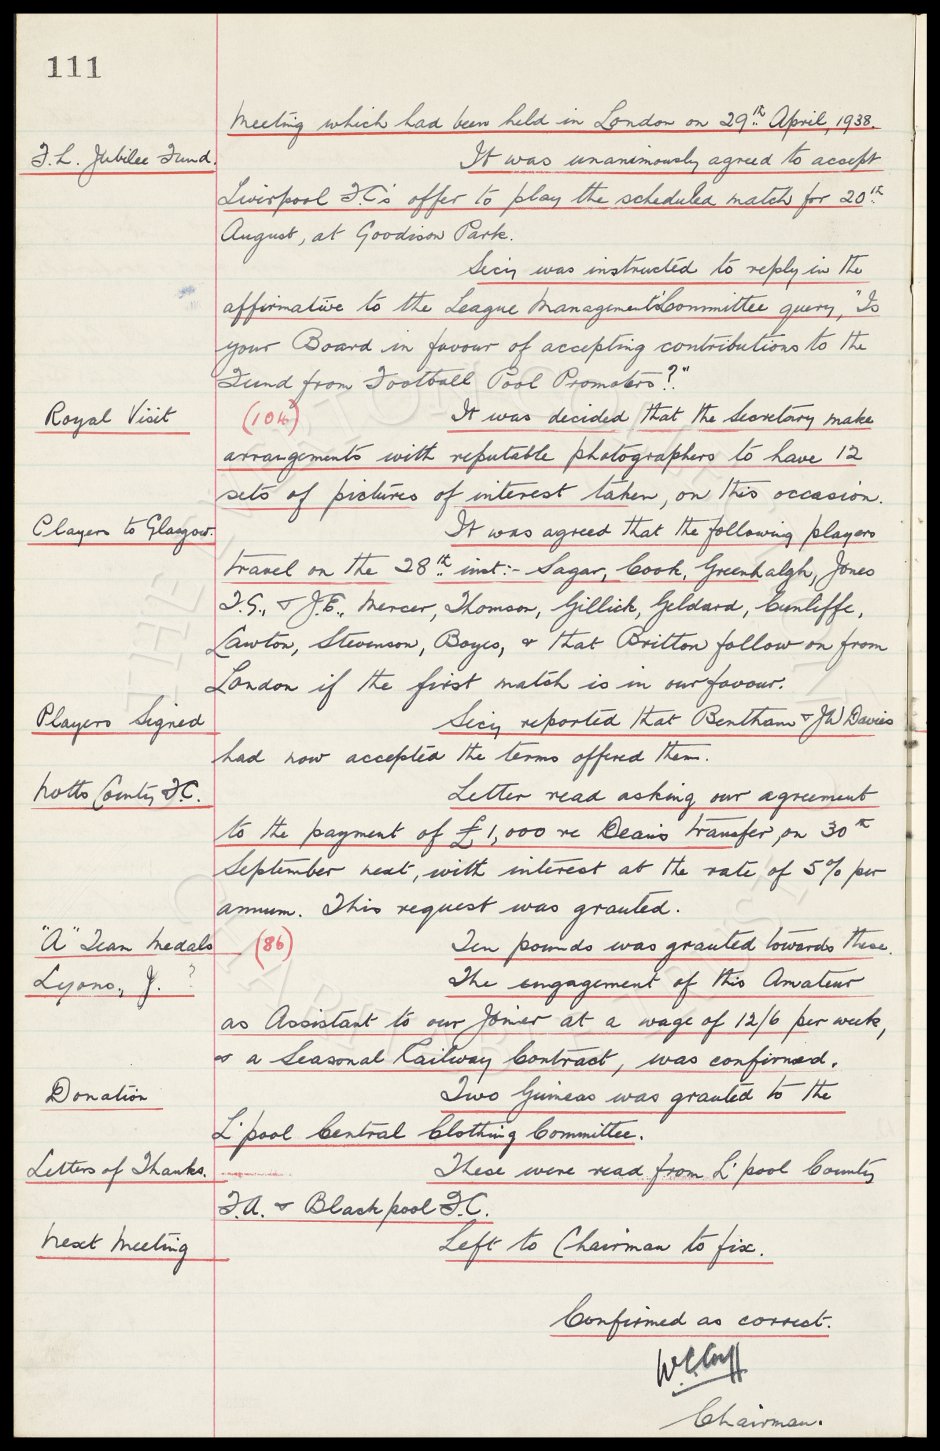 111
meeting which had been held in London on 29th April, 1938.
F.L. Jubilee Fund. It was unanimously agreed to accept
Liverpool F.C's offer to play the scheduled match for 20th
August, at Goodison Park.
Secy was instructed to reply in the
affirmative to the League Management Committee query, "Is
your Board in favour of accepting contributions to the
Fund from Football Pool Promoters?"
Royal Visit (104) It was decided that the Secretary make
arrangements with reputable photographers to have 12
sets of pictures of interest taken, on this occasion.
Players to Glasgow. It was agreed that the following players
travel on the 28th inst:- Sagar, Cook, Greenhalgh, Jones
T.G., & J.E., Mercer, Thomson, Gillick, Geldard, Cunliffe,
Lawton, Stevenson, Boyes, & that Britton follow on from
London if the first match is in our favour.
Players Signed Secy reported that Bentham & J.W. Davies
had now accepted the terms offered them.
Notts County F.C. Letter read asking our agreement
to the payment of £1,000 re Dean's transfer, on 30th
September next, with interest at the rate of 5% per
annum. This request was granted.
"A" Team Medals (86) Ten pounds was granted towards these.
Lyons, J. ? The engagement of this Amateur
as Assistant to our Joiner at a wage of 12/6 per week,
& a Seasonal Railway Contract, was confirmed.
Donation Two Guineas was granted to the
L'pool Central Clothing Committee.
Letters of Thanks. These were read from L'pool County
F.A. & Blackpool F.C.
Next Meeting Left to Chairman to fix.
Confirmed as correct.
W.C. Cuff
Chairman.